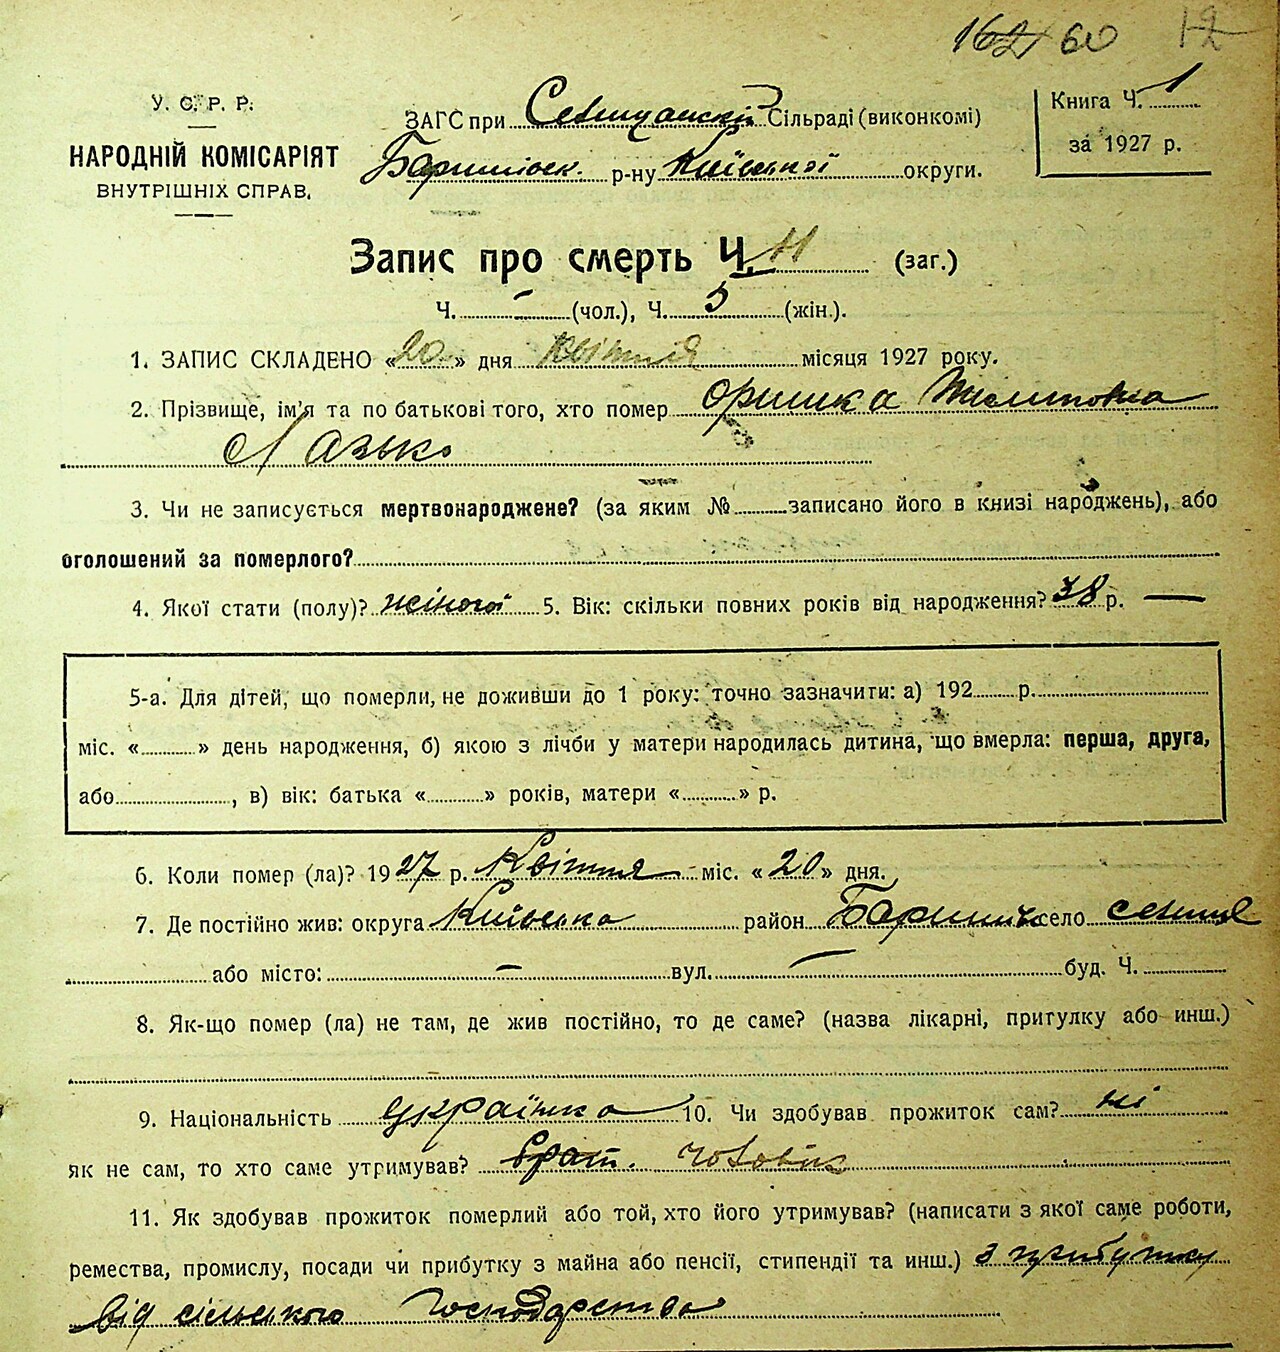 162 60 12
У. С. Р. Р.
НАРОДНІЙ КОМІСАРІЯТ
ВНУТРІШНІХ СПРАВ.
ЗАГС при Сенищанскій Сільраді (виконкомі)
Баришівск. р-ну Київської округи.
Книга Ч. 1
за 1927 р.
Запис про смерть Ч. 11 (заг.)
Ч. - (чол.), Ч. 5 (жін.).
1. ЗАПИС СКЛАДЕНО «20» дня Квітня місяця 1927 року.
2. Прізвище, ім'я та по батькові того, хто помер Оришка
Лазько
3. Чи не записується мертвонароджене? (за яким № записано його в книзі народжень), або
оголошений за померлого?
4. Якої стати (полу)? жіночої 5. Вік: скільки повних років від народження? 38 р. —
5-а. Для дітей, що померли, не доживши до 1 року: точно зазначити: а) 192 р.
міс. « » день народження, б) якою з лічби у матери народилась дитина, що вмерла: перша, друга,
або , в) вік: батька « » років, матери « » р.
6. Коли помер (ла)? 1927 р. Квітня міс. «20» дня.
7. Де постійно жив: округа Київська район Баришів село Сенище
або місто: — вул. — буд. Ч.
8. Як-що помер (ла) не там, де жив постійно, то де саме? (назва лікарні, притулку або инш.)
9. Національність українка 10. Чи здобував прожиток сам? ні
як не сам, то хто саме утримував? брат. чоловік
11. Як здобував прожиток померлий або той, хто його утримував? (написати з якої саме роботи,
ремества, промислу, посади чи прибутку з майна або пенсії, стипендії та инш.) з прибутку
від сільського господарства